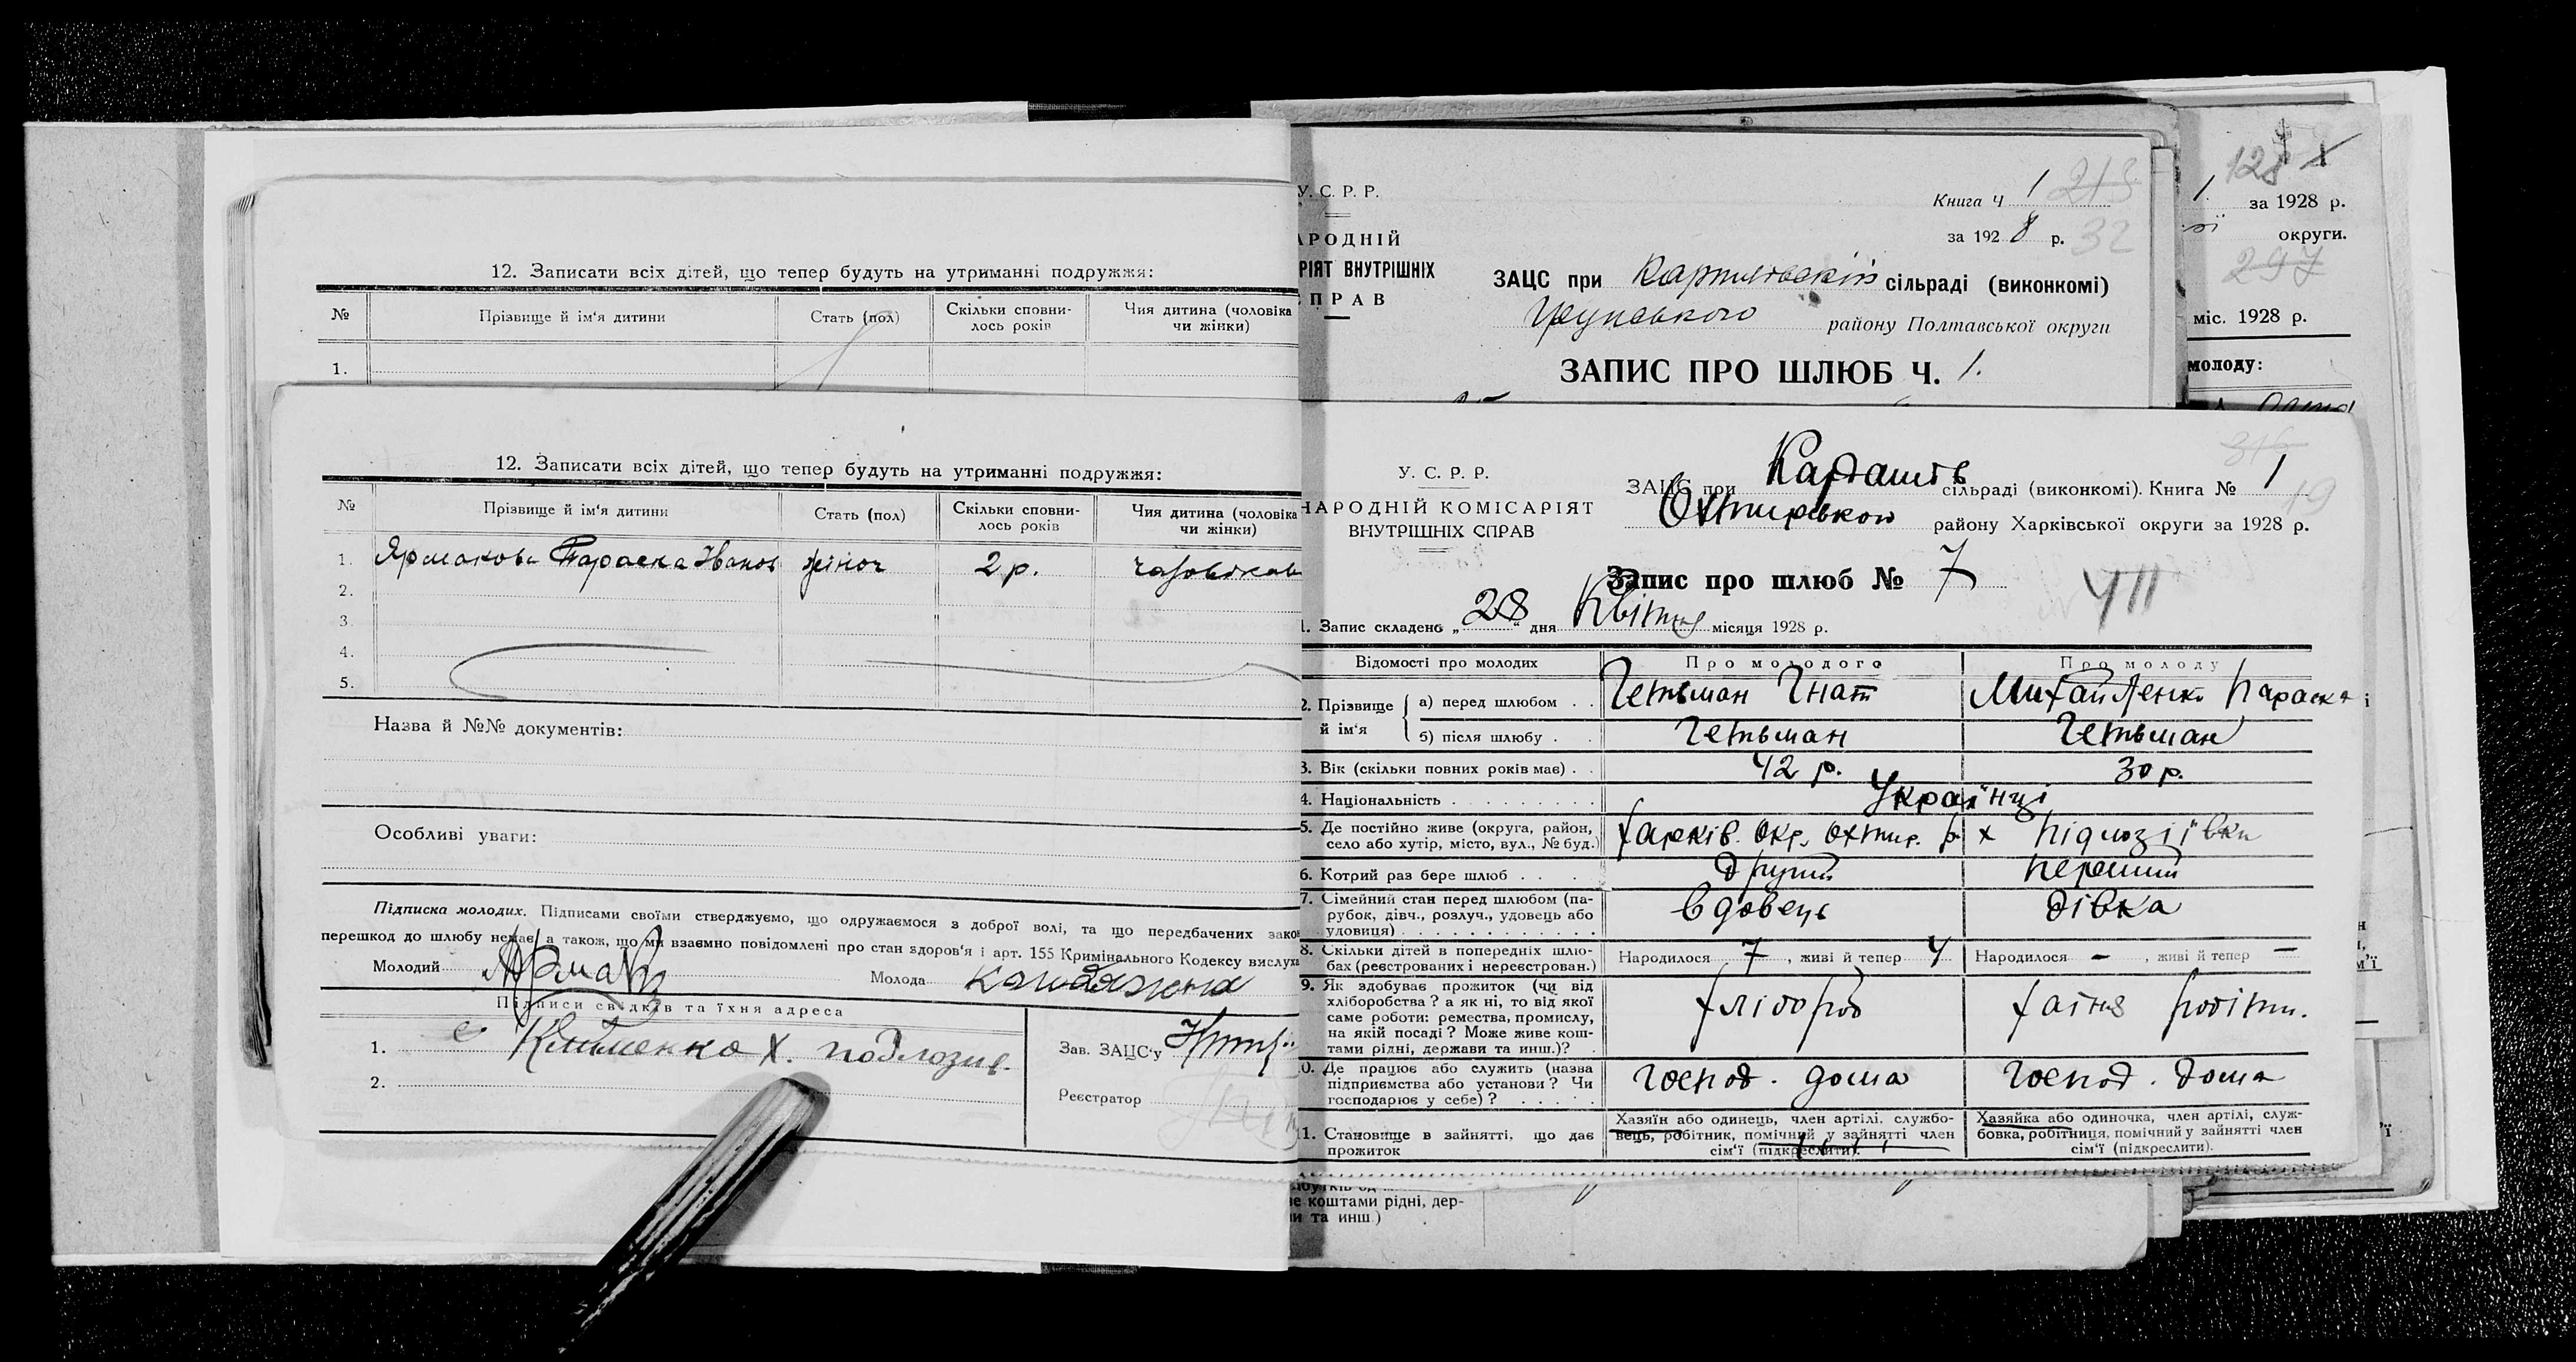 12. Записати всіх дітей, що тепер будуть на утриманні подружжя:
№ Прізвище й ім'я дитини Стать (пол) Скільки сповни-лось років Чия дитина (чоловіка чи жінки)
1.
12. Записати всіх дітей, що тепер будуть на утриманні подружжя:
№ Прізвище й ім'я дитини Стать (пол) Скільки сповни-лось років Чия дитина (чоловіка чи жінки)
1. Ярмакова Параска Іванов жіноч 2 р.
2.
3.
4.
5.
Назва й №№ документів:
Особливі уваги:
Підписка молодих. Підписами своїми стверджуємо, що одружаємося з доброї волі, та що передбачених зако
перешкод до шлюбу немає, а також, що ми взаємно повідомлені про стан здоров'я і арт. 155 Кримінального Кодексу вислуха
Молодий Молода
Підписи свідків та їхня адреса
1. Клименко Х.
2.
Зав. ЗАЦС'у
Реєстратор
У. С. Р. Р.
АРОДНІЙ
РІЯТ ВНУТРІШНІХ
ПРАВ
Книга Ч 1 213
за 1928 р. 32
ЗАЦС при сільраді (виконкомі)
району Полтавської округи
ЗАПИС ПРО ШЛЮБ Ч. 1.
128
1. за 1928 р.
округи.
297
міс. 1928 р.
молоду:
У. С. Р. Р.
НАРОДНІЙ КОМІСАРІЯТ
ВНУТРІШНІХ СПРАВ
316
ЗАЦС при Кардашів сільраді (виконкомі). Книга № 1
19
Охтирьког району Харківської округи за 1928 р.
Запис про шлюб № 7
411
1. Запис складено „28" дня Квітня місяця 1928 р.
Відомості про молодих Про молодого Про молоду
2. Прізвище й ім'я
а) перед шлюбом . . Гетьман Гнат Михайленко Параска
б) після шлюбу . . Гетьман Гетьман
3. Вік (скільки повних років має) . . 42 р. 30 р.
4. Національність . . . . . . . . . Українці
5. Де постійно живе (округа, район, село або хутір, місто, вул., № буд.) Харків. Окр. Охтир. р. х Підлозіївки
6. Котрий раз бере шлюб . . . . другий перший
7. Сімейний стан перед шлюбом (па-рубок, дівч., розлуч., удовець або удовиця) . . . . . . . . . . . вдовець дівка
8. Скільки дітей в попередніх шлю-бах (реєстрованих і нереєстрован.) Народилося 7, живі й тепер 4 Народилося -, живі й тепер -
9. Як здобуває прожиток (чи від хліборобства? а як ні, то від якої саме роботи: ремества, промислу, на якій посаді? Може живе кош-тами рідні, держави та инш.)? хлібороб хатня робітн.
10. Де працює або служить (назва підприємства або установи? Чи господарює у себе)? . . . . . господ. дома господ. дома
11. Становище в зайнятті, що дає прожиток
Хазяїн або одинець, член артілі, службо-вець, робітник, помічний у зайнятті член сім'ї (підкреслити).
Хазяйка або одиночка, член артілі, служ-бовка, робітниця, помічний у зайнятті член сім'ї (підкреслити).
е коштами рідні, дер-
и та инш.)